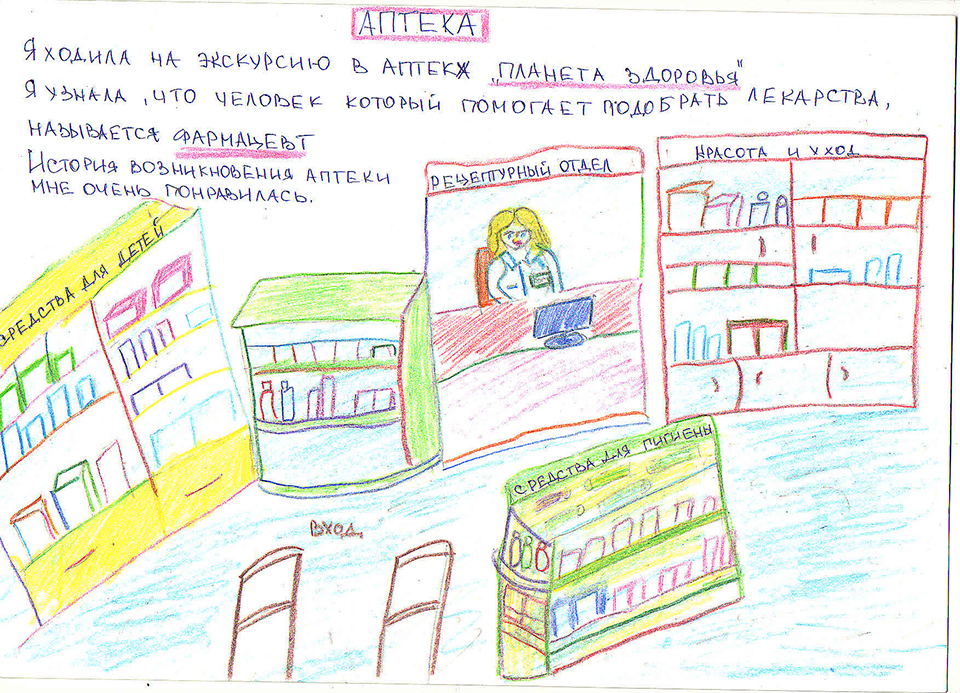 АПТЕКА
Я ХОДИЛА НА ЭКСКУРСИЮ В АПТЕКЖ „ПЛАНЕТА ЗДОРОВЬЯ"
Я УЗНАЛА, ЧТО ЧЕЛОВЕК КОТОРЫЙ ПОМОГАЕТ ПОДОБРАТЬ ЛЕКАРСТВА,
НАЗЫВАЕТСЯ ФАРМАЦЕВТ
ИСТОРИЯ ВОЗНИКНОВЕНИЯ АПТЕКИ
МНЕ ОЧЕНЬ ПОНРАВИЛАСЬ.
СРЕДСТВА ДЛЯ ДЕТЕЙ
РЕЦЕПТУРНЫЙ ОТДЕЛ
КРАСОТА И УХОД
СРЕДСТВА ДЛЯ ГИГИЕНЫ
ВХОД.